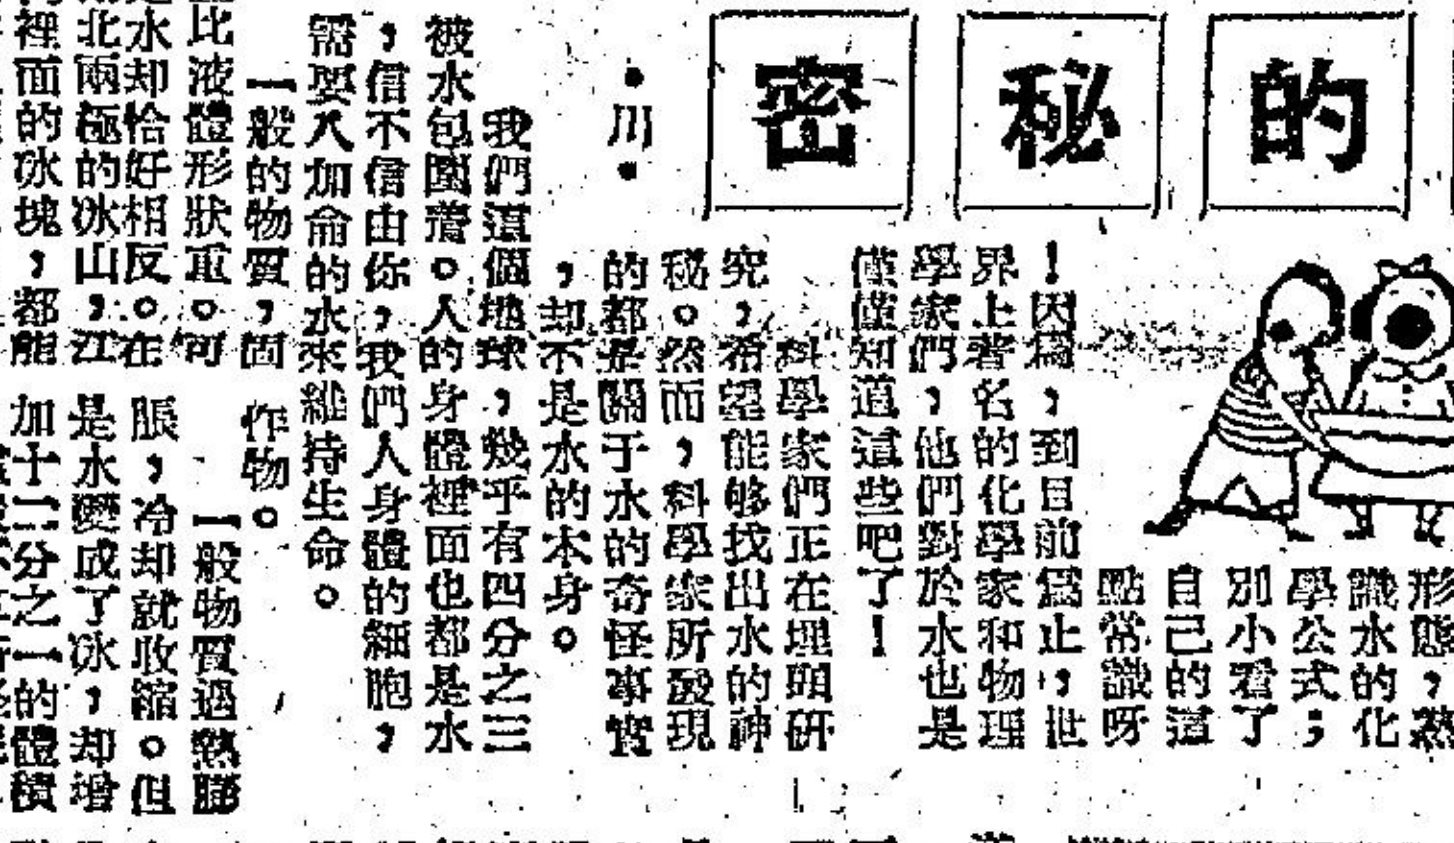 的秘密
・川・
形態，
識水的化
學公式；
別小看了
自己的這
點常識呀
！因爲，到目前爲止，世
界上著名的化學家和物理
學家們，他們對於水也是
僅僅知道這些吧了！
科學家們正在埋頭研
究，希望能够找出水的神
秘。然而，科學家所發現
的都是關于水的奇怪事實
，却不是水的本身。
我們這個地球，幾乎有四分之三
被水包圍着。人的身體裡面也都是水
，信不信由你，我們人身體的細胞，
需要人加侖的水來維持生命。
一般的物質，固
比液體形狀重。可
水却恰好相反。在
北兩極的冰山，江
裡面的冰塊，都能
作物。
一般物質遇熱膨
脹，冷却就收縮。但
是水變成了冰，却增
加十二分之一的體積